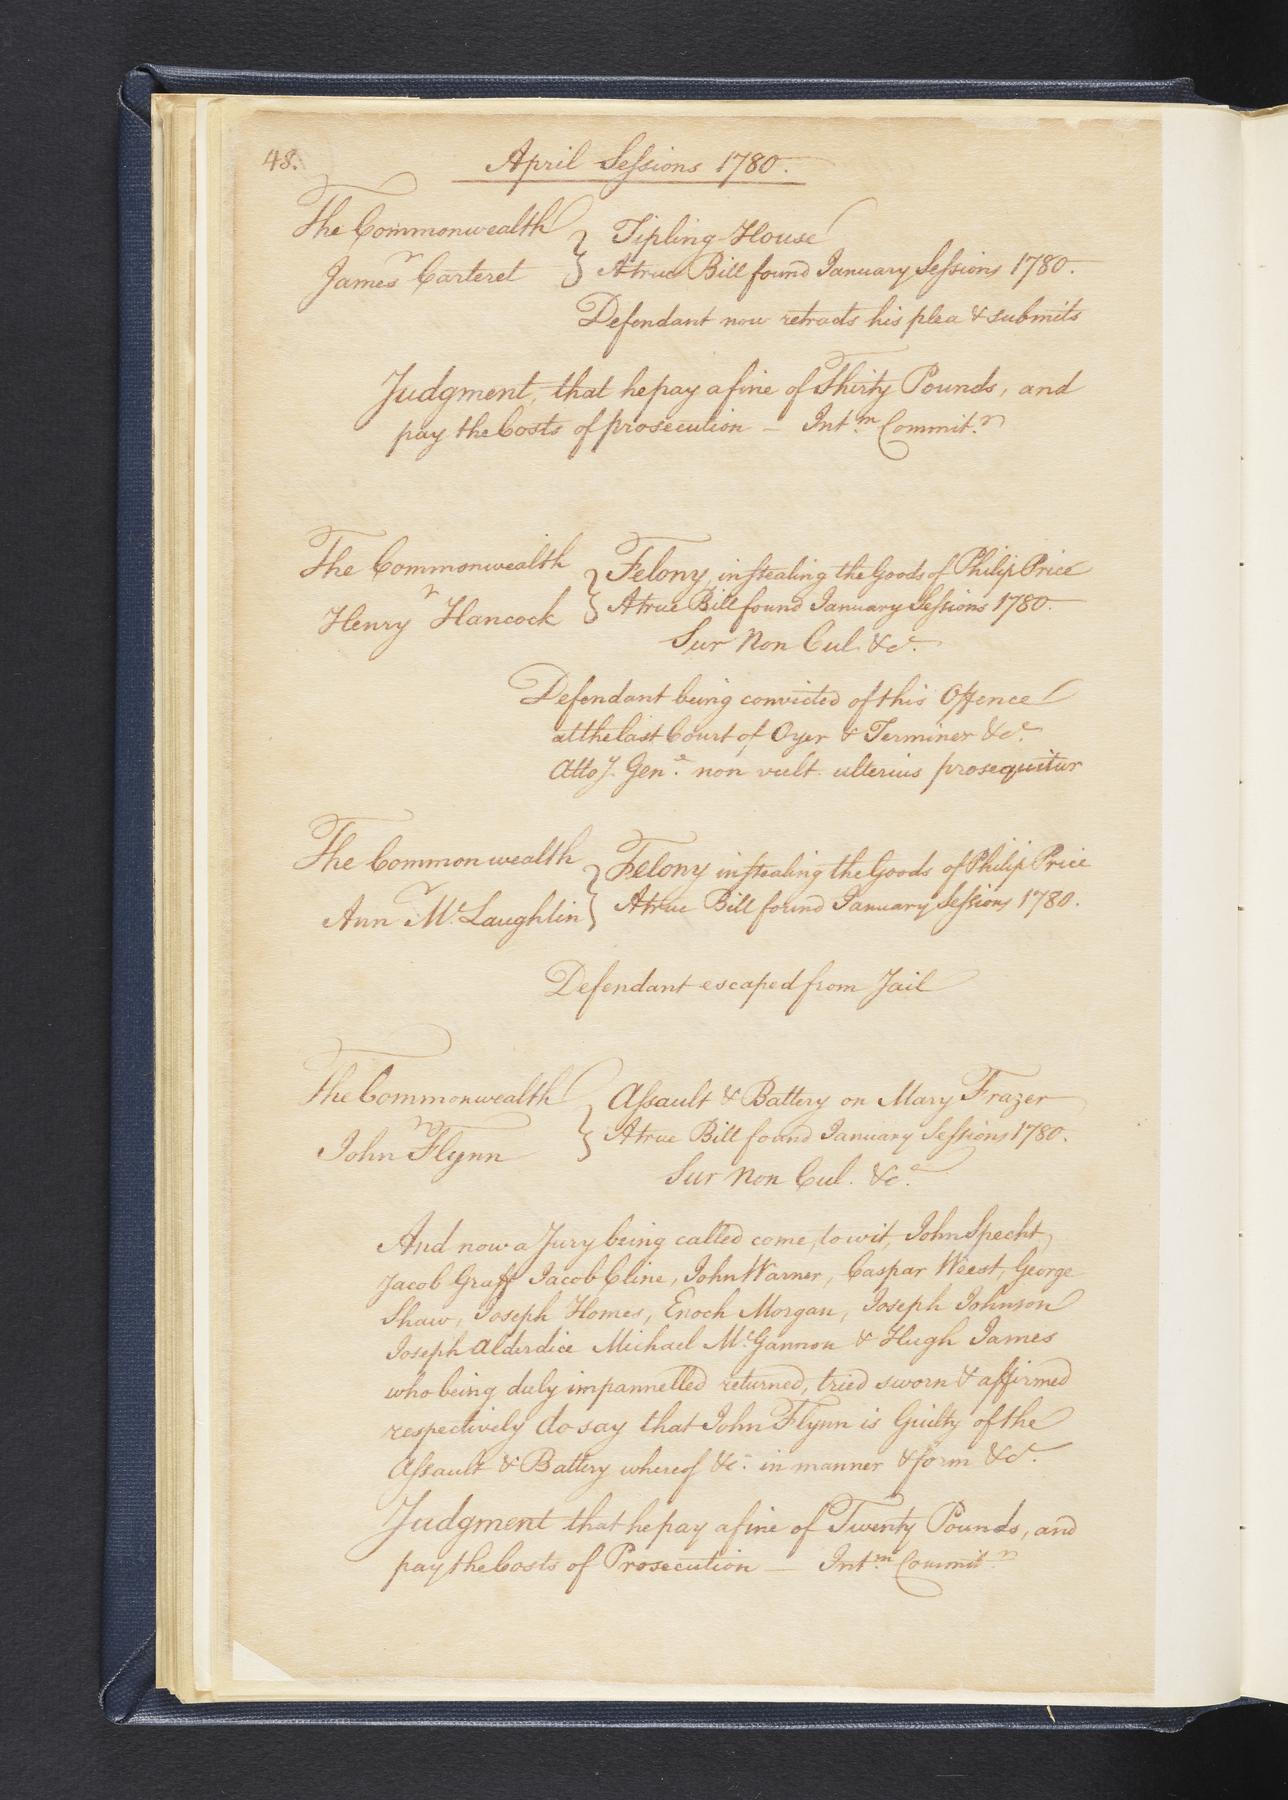 48.
April Sessions 1780.
The Commonwealth } Tipling-House
v
James Carteret } A true Bill found January Sessions 1780.
Defendant now retracts his plea & submits
Judgment, that he pay a fine of Thirty Pounds, and
pay the Costs of prosecution — Int.m Commit.r
The Commonwealth } Felony, in stealing the Goods of Philip Price
v
Henry Hancock } A true Bill found January Sessions 1780.
Sur Non Cul. &c.
Defendant being convicted of this Offence
at the last Court of Oyer & Terminer &c.
Atto.y Gen.l non vult ulterius prosequitur
The Commonwealth } Felony in stealing the Goods of Philip Price
v
Ann Mc.Laughlin } A true Bill found January Sessions 1780.
Defendant escaped from Jail
The Commonwealth } Assault & Battery on Mary Frazer
v
John Flynn } A true Bill found January Sessions 1780.
Sur Non Cul. &c.
And now a Jury being called come, to wit, John Specht,
Jacob Graff Jacob Cline, John Warner, Caspar Weest, George
Shaw, Joseph Homes, Enoch Morgan, Joseph Johnson
Joseph Alderdice Michael Mc.Gannon & Hugh James
who being duly impannelled returned, tried sworn & affirmed
respectively do say that John Flynn is Guilty of the
Assault & Battery whereof &c. in manner & form &c.
Judgment that he pay a fine of Twenty Pounds, and
pay the Costs of Prosecution — Int.m Commit.r